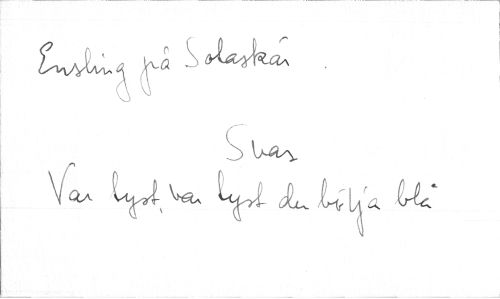 Ensling på Solaskär.
Svar
Var tyst, var tyst du bölja blå